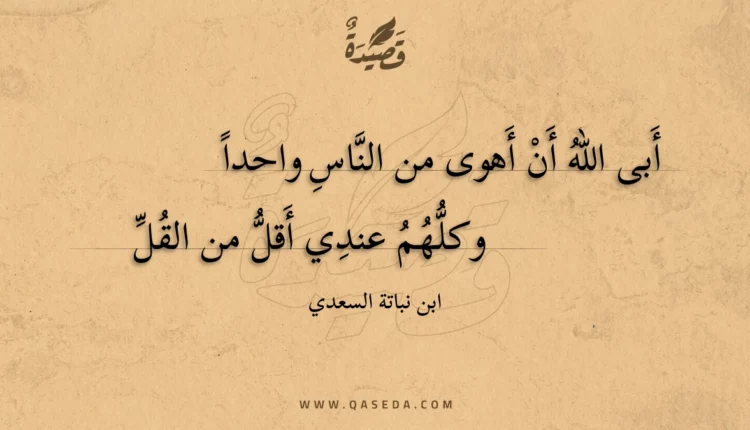 قَصِيدَةٌ
أَبى اللهُ أَنْ أَهوى من النَّاسِ واحداً
وكلُّهُمُ عندِي أَقلُّ من القُلِّ
ابن نباتة السعدي
WWW.QASEDA.COM